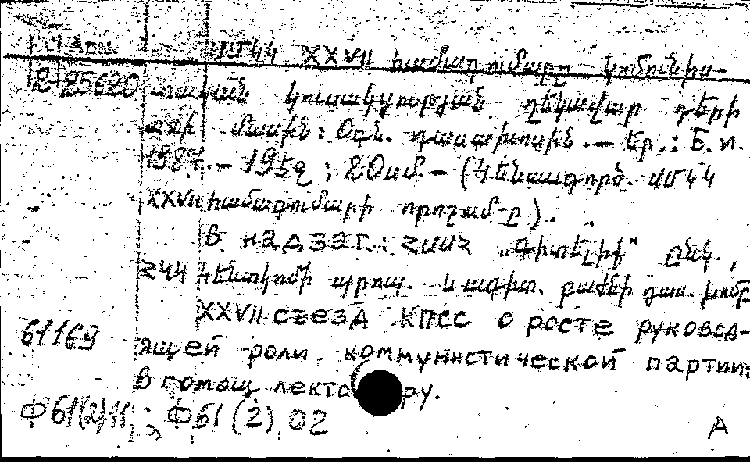 ՍՄԿԿ XXVII համագումարը կոմունիս-
2-25620 տական կուսակցության ղեկավար դերի
աճի մասին: Օգն. դասախոսին. — Եր.: Б. и.
1987. — 19 էջ; 20 սմ. — (Կենսագործ. ՍՄԿԿ
XXVII համագումարի որոշումը).
В надзаг.: ՀՍՍՀ „Գիտելիք" ընկ.,
ՀԿԿ Կենտկոմի պրոպ. և ագիտ. բաժնի դաս. խումբ
XXVII съезд КПСС о росте руковод-
61169 ящей роли коммунистической партии:
В помощь лектору.
Ф61(2)11; Ф61(2)02
A